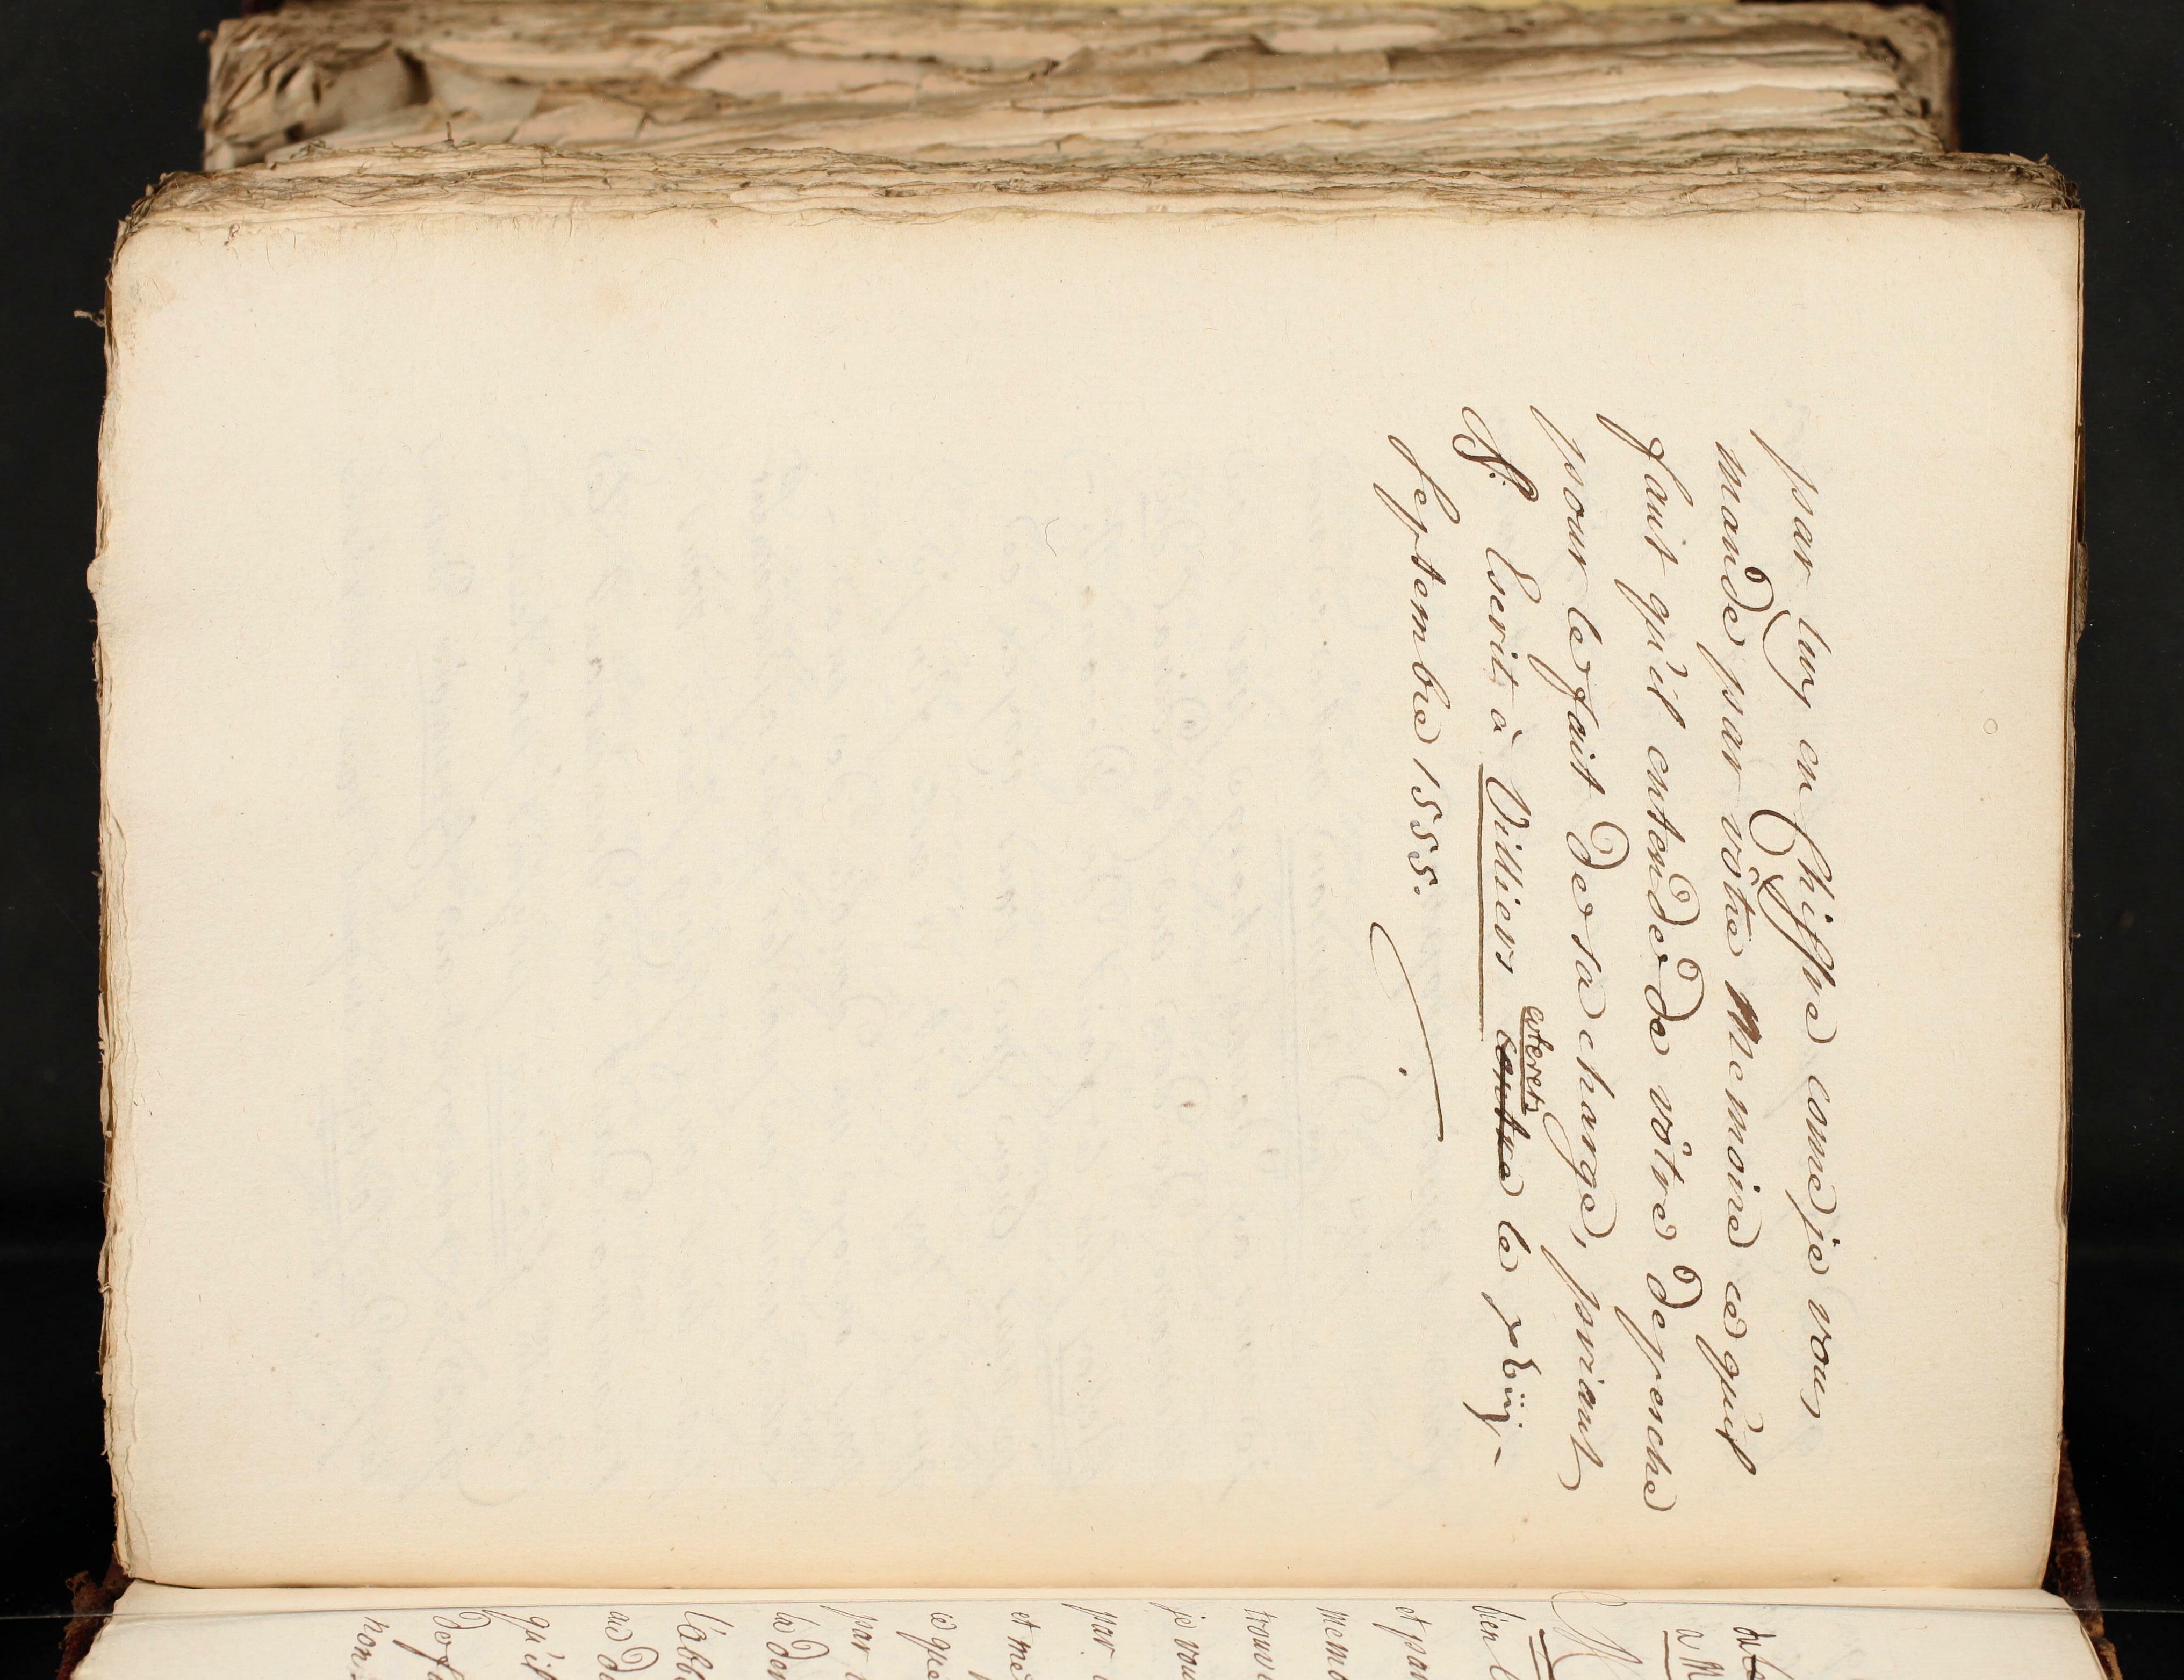 par luy en Chiffre comme je vous
mande par vôtre Memoire ce qu'il
faut qu'il entende de vôtre depesche
pour le fait de sa charge, priant
&c. Escrit à Villiers contre le xviij.
coterets
septembre 1555.
bien l
et par
memo
trouve
je vou
par
et me
ce que
par
la don
l'abb
au d
qu'il
de f
non